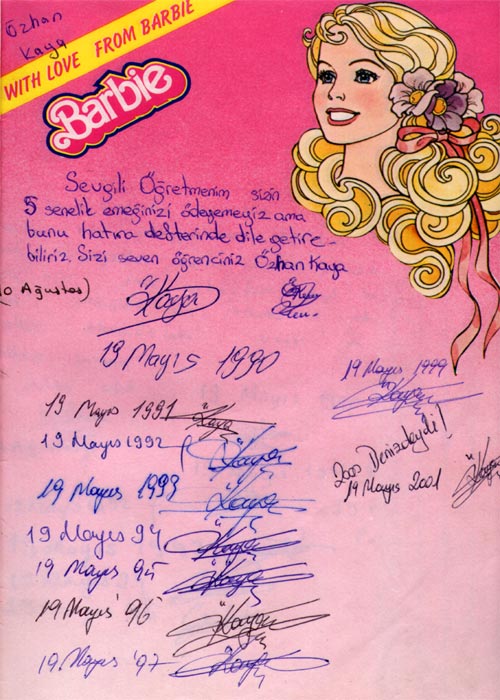 Özhan
Kaya
WITH LOVE FROM BARBIE
Barbie
Sevgili Öğretmenim sizin
5 senelik emeğinizi ödeyemeyiz ama
bunu hatıra defterinde dile getire-
biliriz. Sizi seven öğrenciniz Özhan Kaya
10 Ağustos)
ÖKaya
19 Mayıs 1990
19 Mayıs 1991
19 Mayıs 1992
19 Mayıs 1993
19 Mayıs 94
19 Mayıs 95
19 Mayıs' 96
19 Mayıs '97
19 Mayıs 1999
2000 Denizdeydi!
19 Mayıs 2001